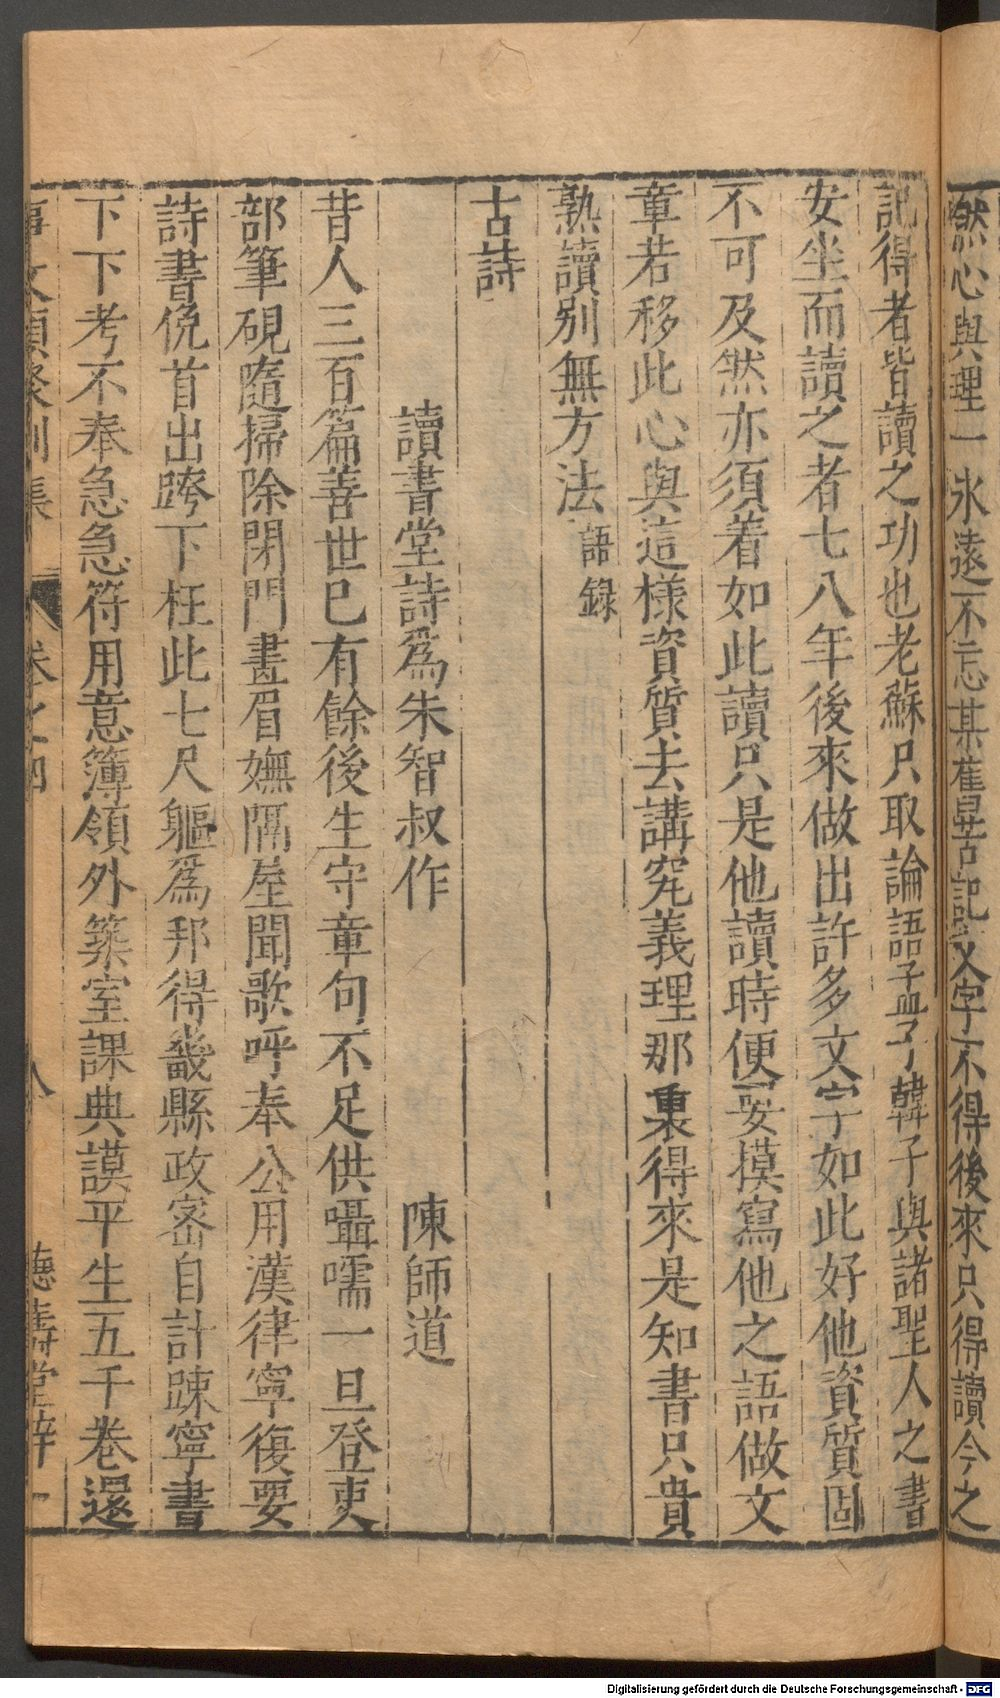 然心與理一永遠不忘某舊苦記文字不得後來只得讀今之
記得者皆讀之功也老蘇只取論語孟子韓子與諸聖人之書
安坐而讀之者七八年後來做出許多文字如此好他資質固
不可及然亦須着如此讀只是他讀時便要摸寫他之語做文
章若移此心與這樣資質去講究義理那裏得來是知書只貴
熟讀別無方法語錄
古詩
讀書堂詩爲朱智叔作 陳師道
昔人三百篇善世已有餘後生守章句不足供囁嚅一旦登吏
部筆硯隨掃除閉門畫眉嫵隔屋聞歌呼奉公用漢律寧復要
詩書俛首出跨下枉此七尺軀爲邦得畿縣政密自計踈寧書
下下考不奉急急符用意簿領外築室課典謨平生五千卷還
事文類聚別集 卷之四 八 德壽堂梓
Digitalisierung gefördert durch die Deutsche Forschungsgemeinschaft - DFG